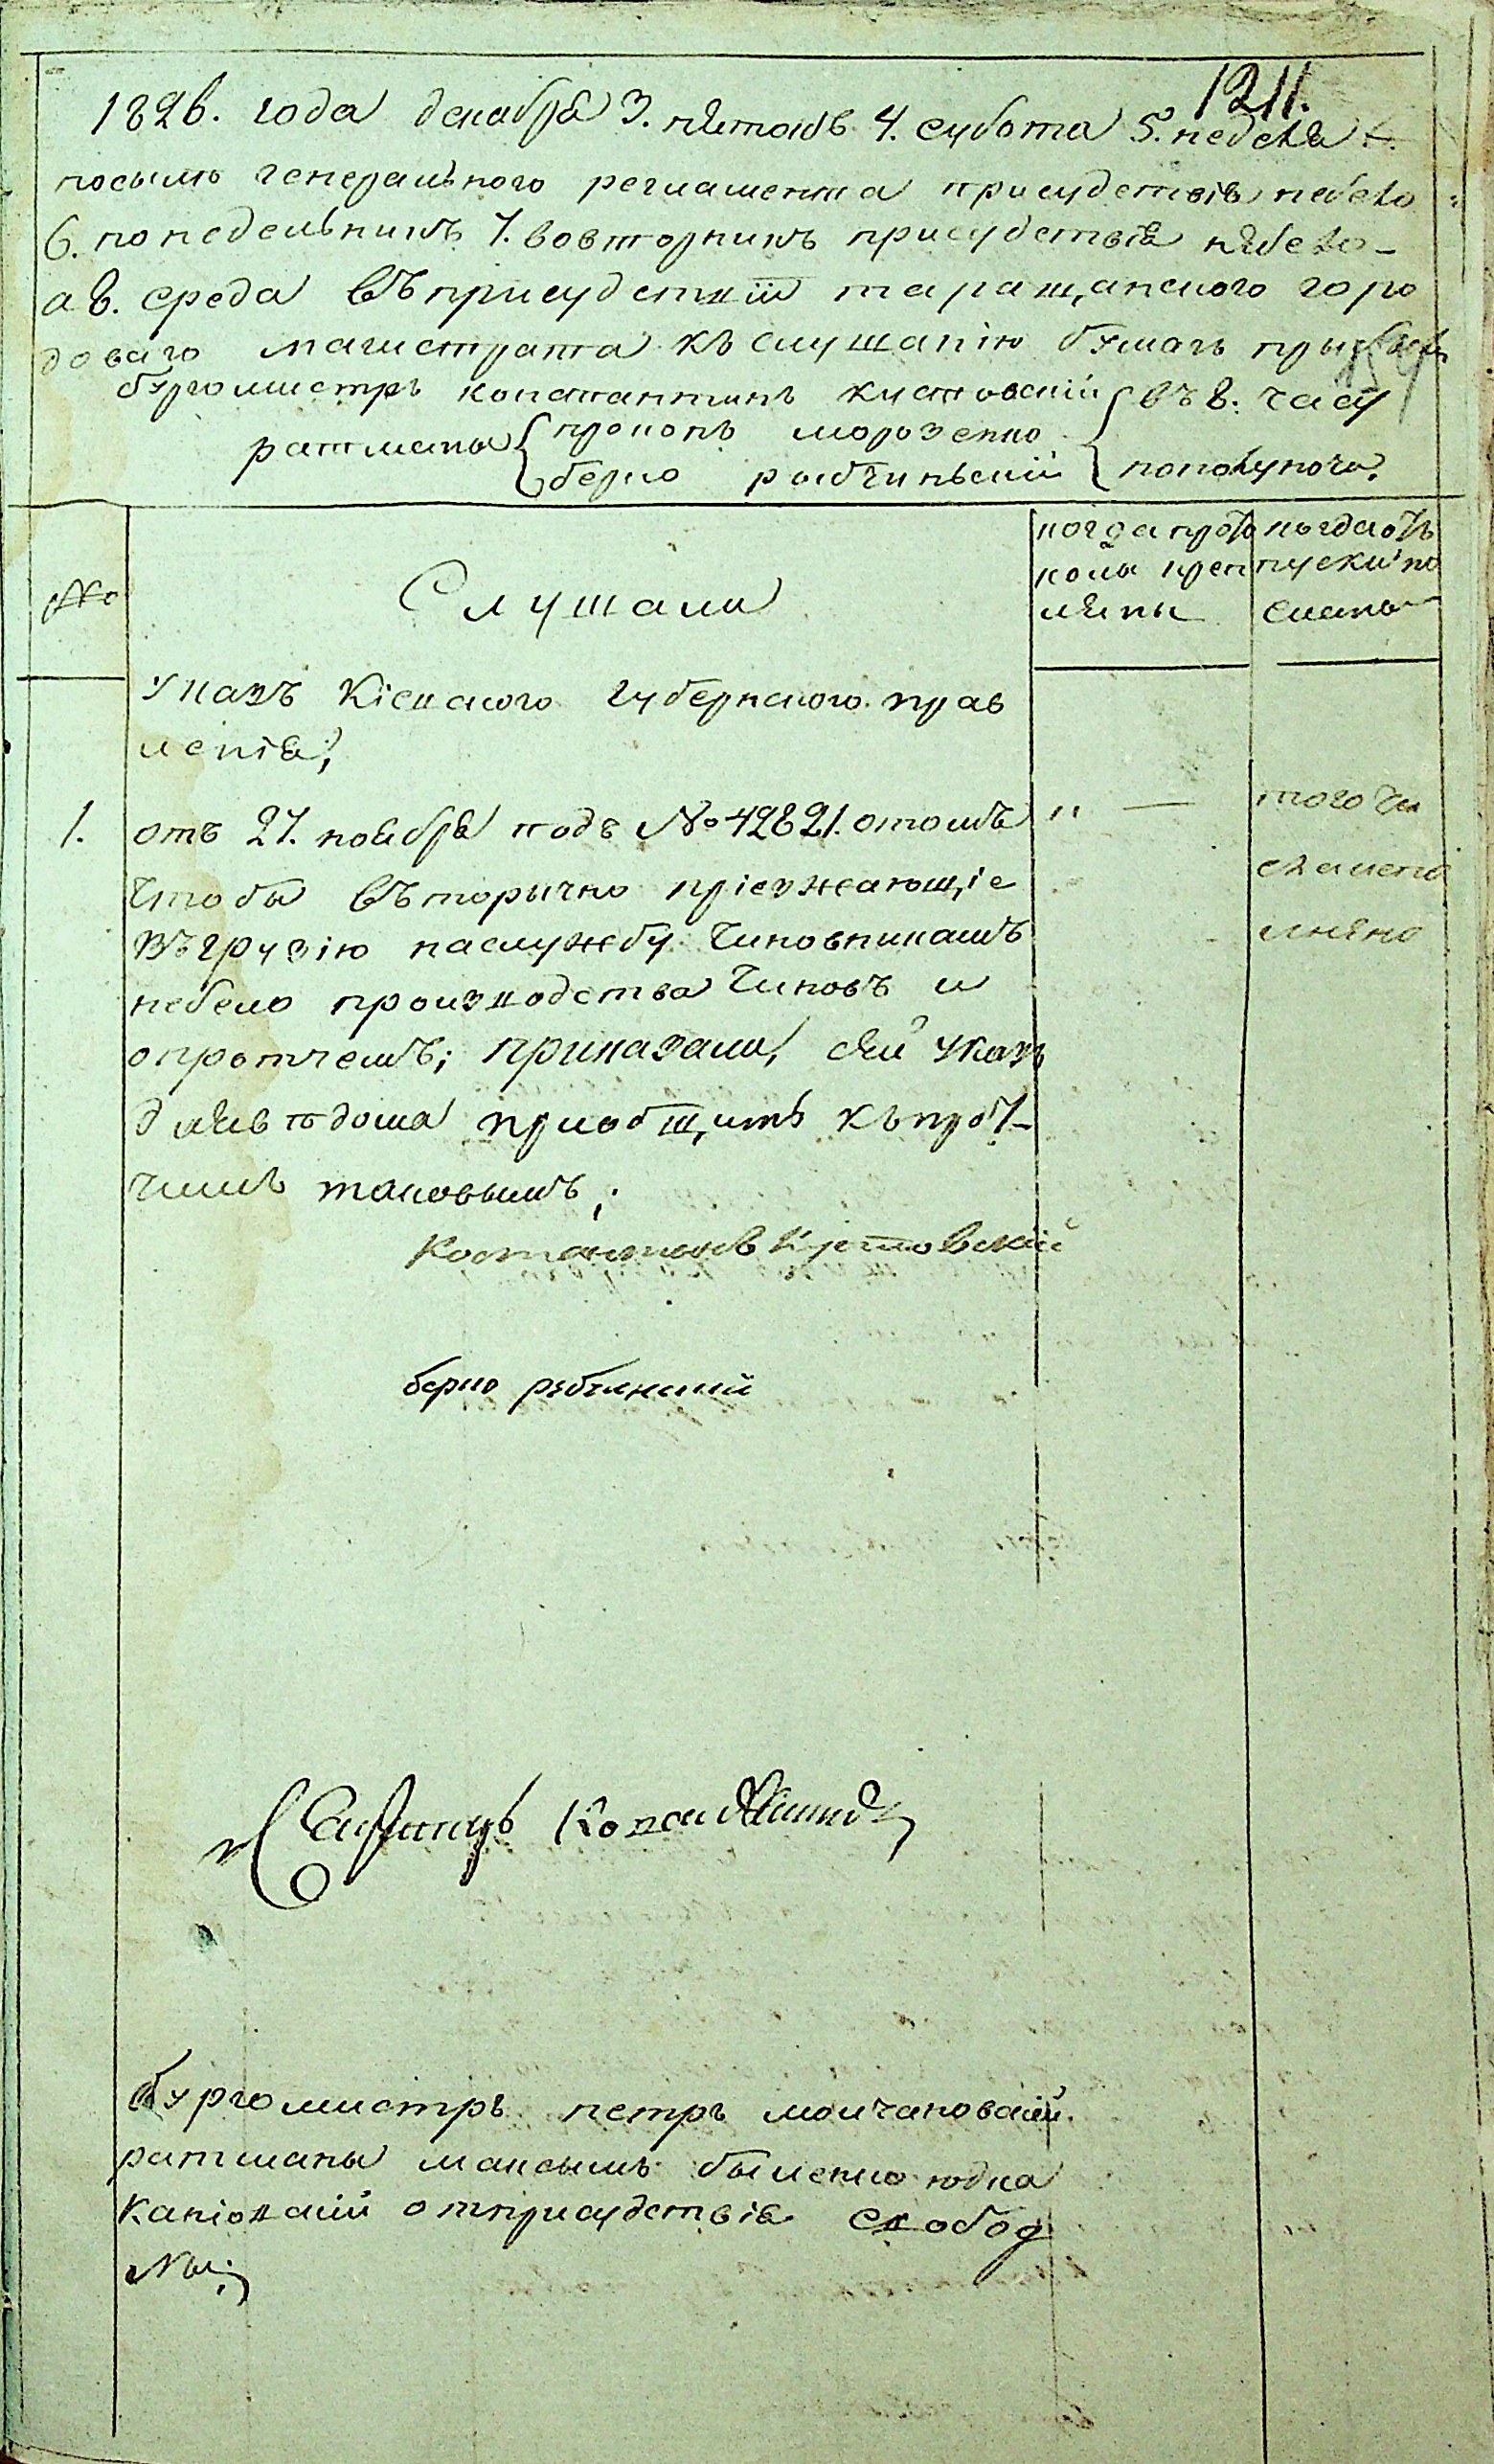 1211.
1826. года декабря 3. пятокъ 4. субота 5. неделя
посылѣ генерального регламента присудствія небело
6. понедельникъ 7. вовторникъ присудствія нѣбело
а 8. среда въ присудствіи таращанского горо
доваго магистрата къ слушанію бумагъ прибыли
бургомистръ константинъ кустовскій въ 8. часу
ратманы прокопъ морозенко
берко рыбчиньскій пополуночи.
№
Слушали
когда прото
колы креп
ляны
когда от
пуски по
сланы
Указъ Кіевского губернского прав
ленія;
1. отъ 27. ноября подъ № 42821. отомъ
чтобы въторычно пріезжающіе
въ грузію наслужбу чиновникамъ
небело производства чиновъ и
опротчемъ; приказали, сей указъ
для вѣдома приобщить къ прот-
чимъ таковымъ;
того чи
сла испо
лняно
Костантинъ Кустовскій
берко рыбчинский
бургомистръ петръ молчановский.
ратманы максымъ быленко юдка
каніовский отприсудствія свобод
ны;